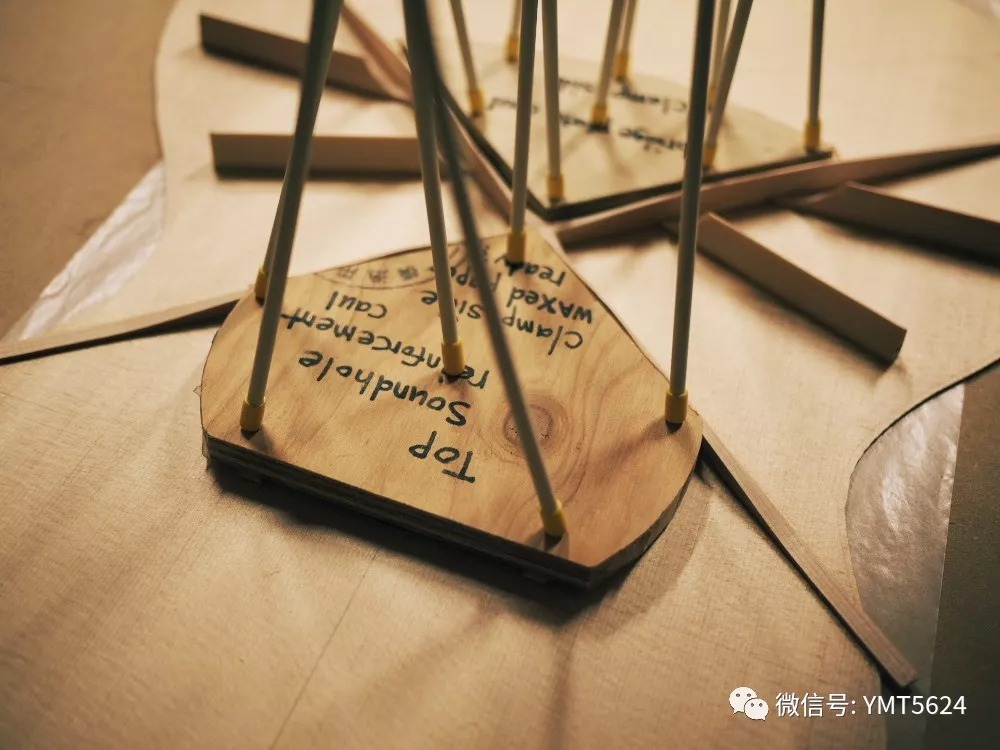 Top
Soundhole
reinforcement
Caul
Clamp side
waxed Paper
ready
Bridge plate Caul
Clamp side
微信号: YMT5624